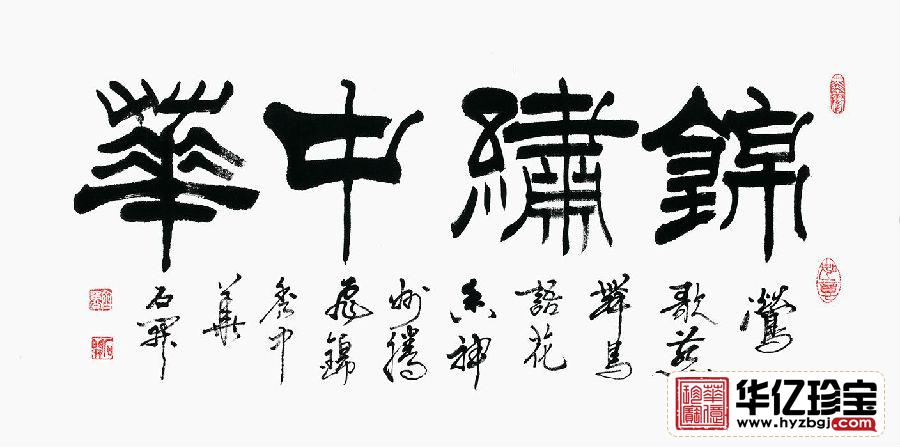 錦繡中華
鶯
歌燕
舞鳥
語花
香神
州騰
飛錦
秀中
華
石開
华亿珍宝
www.hyzbgj.com